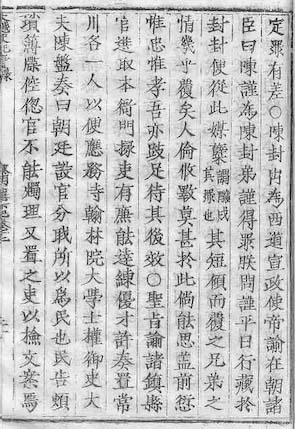 定罪有差○陳封內為西道宣政使帝諭在朝諸
臣曰陳謹為陳封弟謹得罪朕問謹平日行藏於
封封使從此媒糵謂釀成其罪也其短傾而覆之兄弟之
情幾乎覆矣人倫攸斁莫甚於此倘能思蓋前愆
惟忠惟孝吾亦跂足待其後效○聖旨諭諸鎮縣
官選取本衙門掾吏有廉能達練優才許奏置常
川各一人以便應務寺翰林院大學士權御史大
夫陳盤奏曰朝廷設官分職所以為民也民告煩
瑣簿牒倥偬官不能燭理又置之吏以檢文案焉